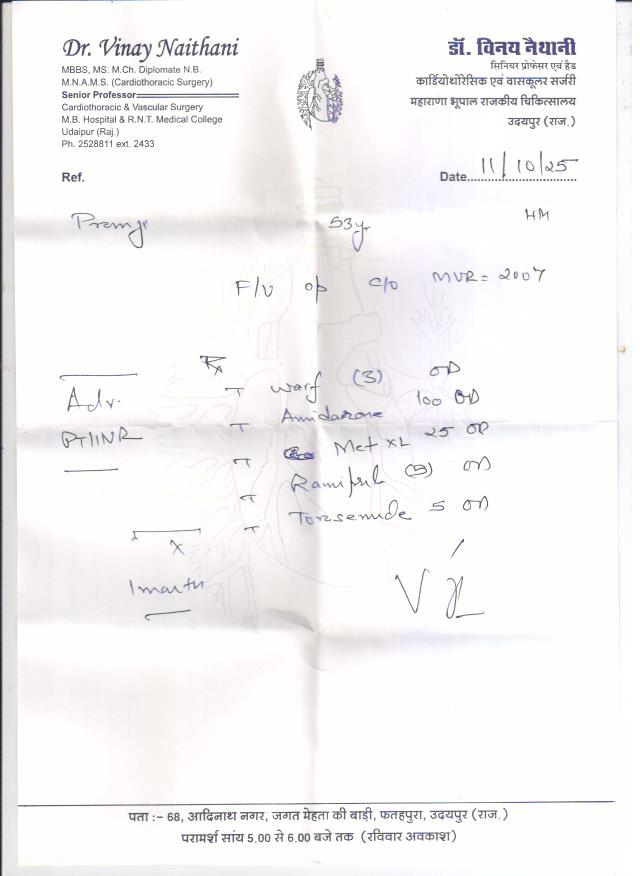 Dr. Vinay Naithani
MBBS, MS. M.Ch. Diplomate N.B.
M.N.A.M.S. (Cardiothoracic Surgery)
Senior Professor
Cardiothoracic & Vascular Surgery
M.B. Hospital & R.N.T. Medical College
Udaipur (Raj.)
Ph. 2528811 ext. 2433
डॉ. विनय नैथानी
सिनियर प्रोफेसर एवं हैड
कार्डियोथोरेसिक एवं वासकूलर सर्जरी
महाराणा भूपाल राजकीय चिकित्सालय
उदयपुर (राज.)
Ref.
Date 11/10/25
Premji 53yr HM
F/U op c/o MVR = 2007
Rx
Adv.
PT/INR
T Warf (3) OD
T Amidarone 100 OD
T Met XL 25 OD
T Ramipril (5) OD
T Torsemide 5 OD
x
1 month
पता :- 68, आदिनाथ नगर, जगत मेहता की बाड़ी, फतहपुरा, उदयपुर (राज.)
परामर्श सांय 5.00 से 6.00 बजे तक (रविवार अवकाश)